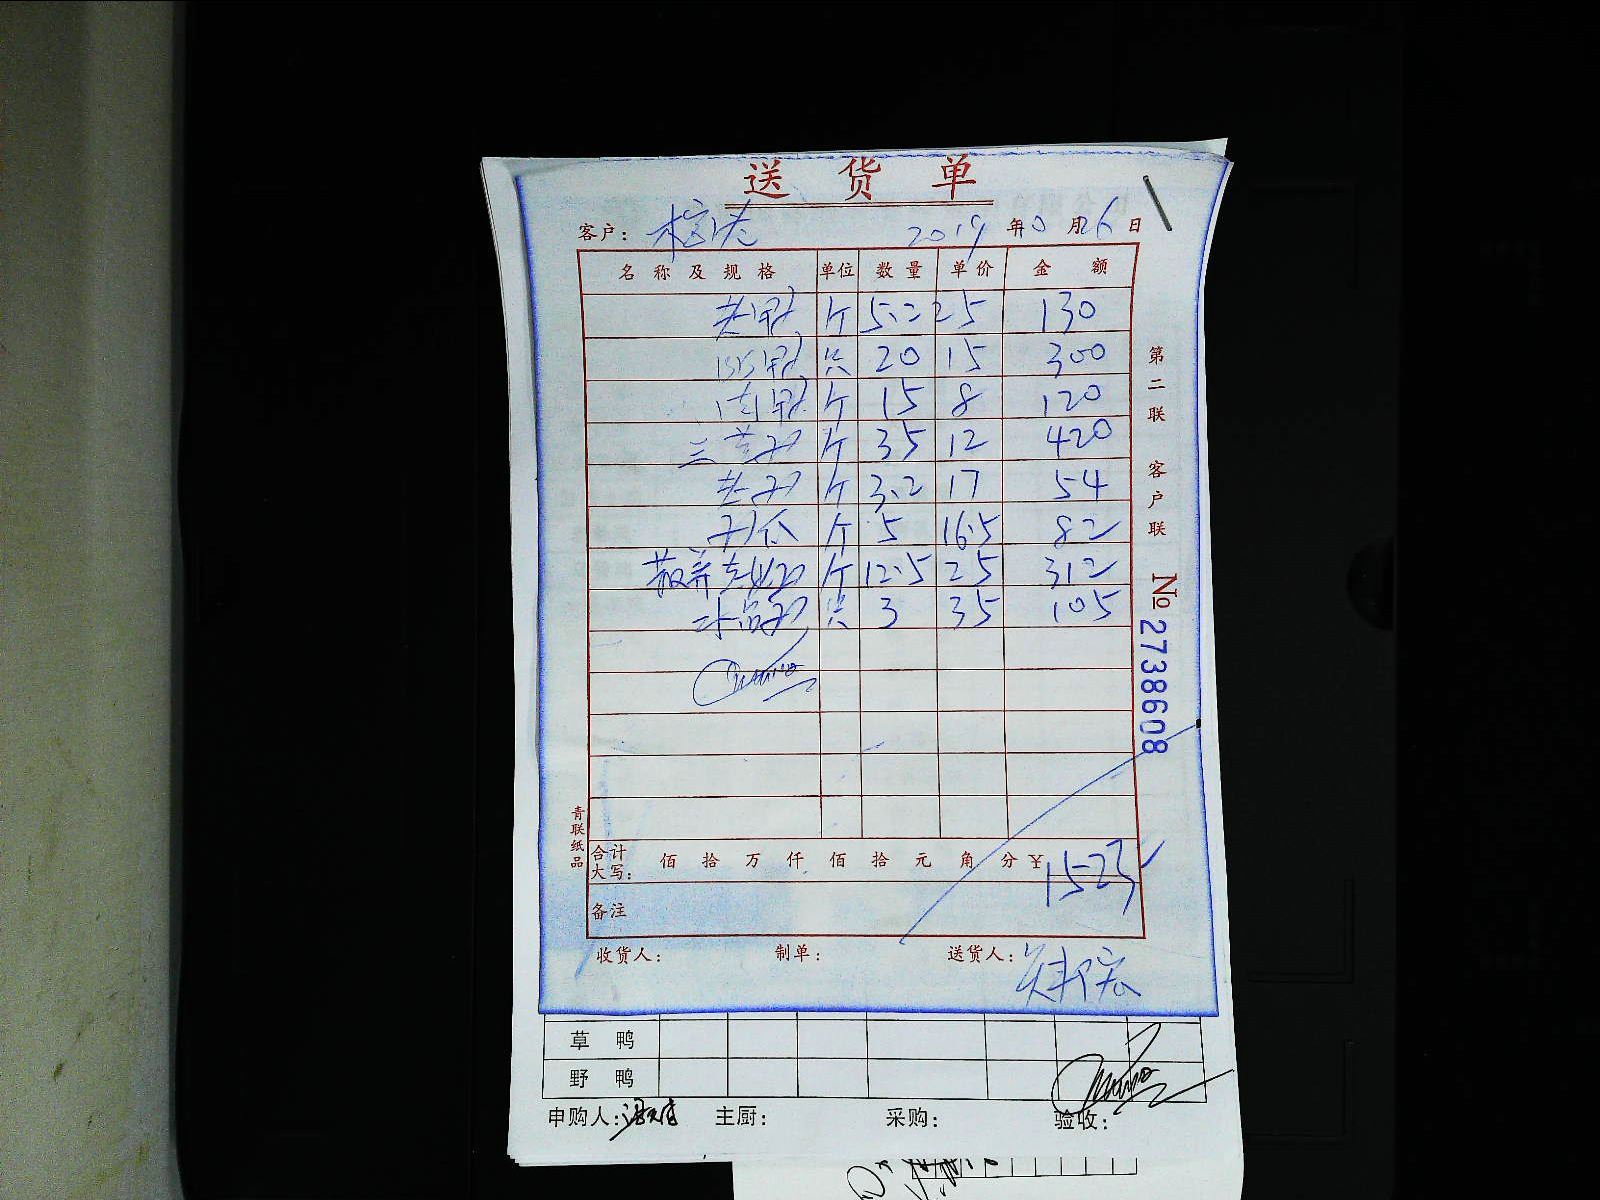 送货单
客户： 2019年10月26日
名称及规格 单位 数量 单价 金额
老鸭 斤 5.2 25 130
鸭 只 20 15 300
肉鸭 斤 15 8 120
三黄 斤 35 12 420
老 斤 3.2 17 54
斤 5 16.5 82
散养 斤 12.5 25 312
只 3 35 105
第二联 客户联
№ 2738608
青联纸品
合计大写： 佰 拾 万 仟 佰 拾 元 角 分 ¥ 1523
备注
收货人： 制单： 送货人：
草鸭
野鸭
申购人： 主厨： 采购： 验收：